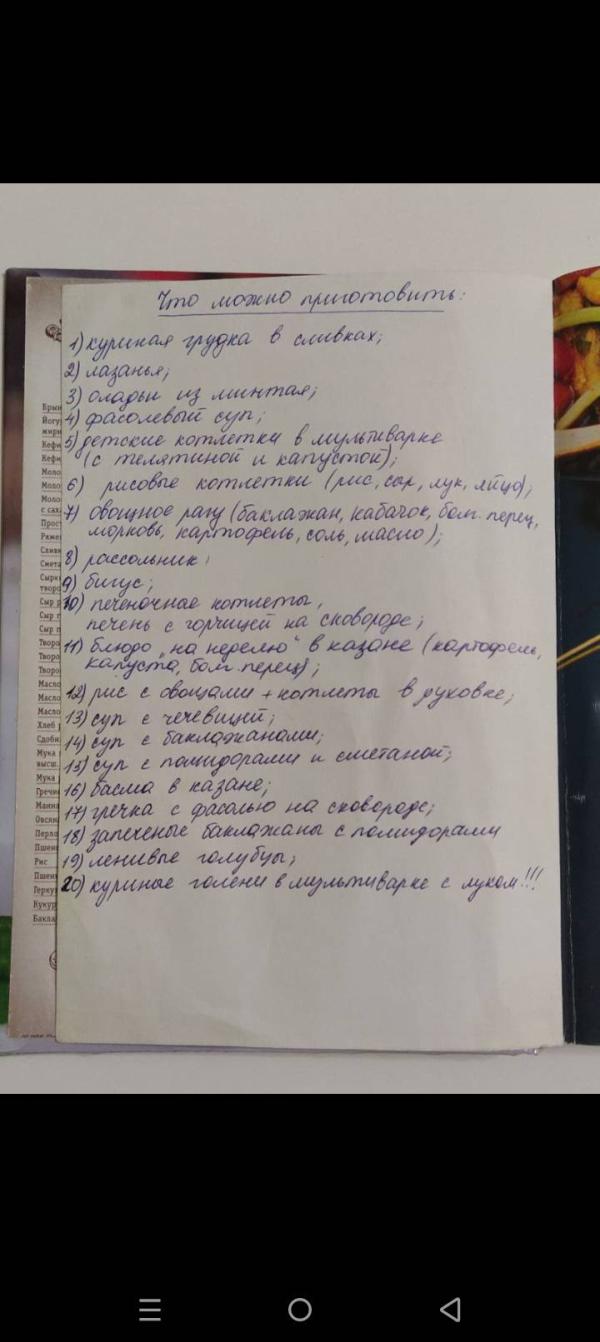 Что можно приготовить:
1) куриная грудка в сливках;
2) лазанья;
3) оладьи из минтая;
4) фасолевый суп;
5) детские котлетки в мультиварке
(с телятиной и капустой);
6) рисовые котлетки (рис, сыр, лук, яйцо);
7) овощное рагу (баклажан, кабачок, бол. перец,
морковь, картофель, соль, масло);
8) рассольник;
9) бигус;
10) печеночные котлеты,
печень с горчицей на сковороде;
11) блюдо „на неделю“ в казане (картофель,
капуста, бол. перец);
12) рис с овощами + котлеты в духовке;
13) суп с чечевицей;
14) суп с баклажанами;
15) суп с помидорами и сметаной;
16) басма в казане;
17) гречка с фасолью на сковороде;
18) запеченые баклажаны с помидорами
19) ленивые голубцы;
20) куриные голени в мультиварке с луком!!!
Брын
Йогу
жирн
Кефи
Кефи
Моло
Моло
Моло
с саха
Прост
Ряжен
Сливк
Смета
Сырк
творо
Сыр р
Сыр п
Сыр п
Творо
Творо
Творо
Масло
Масло
Масло
Хлеб р
Сдобн
Мука п
высш.
Мука п
Гречн
Манна
Овсян
Перло
Пшен
Рис
Пшен
Герку
Кукур
Бакла